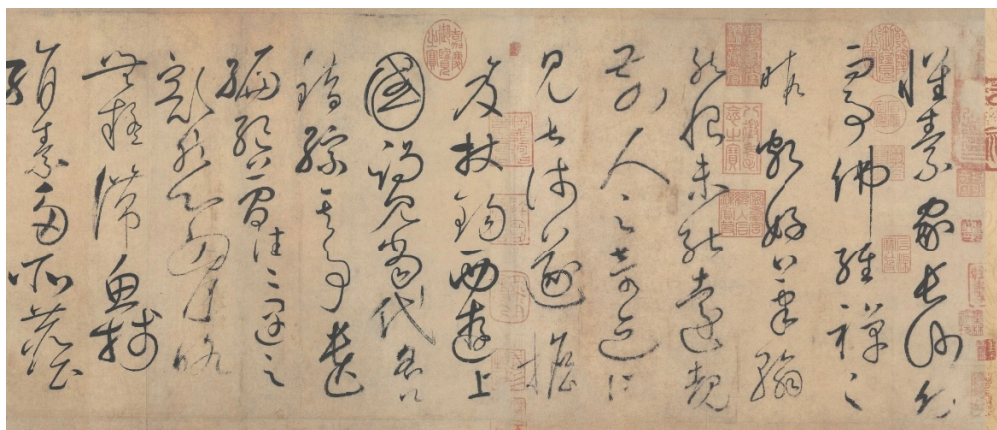 懷素家長沙幼
而事佛經禪之
暇頗好筆翰
然恨未能遠覩
前人之奇迹所
見甚淺遂擔
笈杖錫西遊上
國謁見當代名公
錯綜其事遺
編絕簡往往遇之
豁然心胸略
無疑滯魚牋
絹素多所塵點